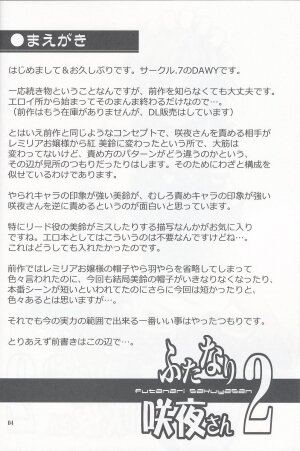 ●まえがき
はじめまして＆お久しぶりです。サークル.7のDAWYです。
一応続き物ということなんですが、前作を知らなくても大丈夫です。
エロイ所から始まってそのまんま終わるだけなので…。
（前作はもう在庫がありませんが、DL販売しています）
とはいえ前作と同じようなコンセプトで、咲夜さんを責める相手が
レミリアお嬢様から紅 美鈴に変わったという所で、大筋は
変わってないけど、責め方のパターンがどう違うのかという、
その辺が見所のつもりだったりします。そのためにわざと構成を
似せているわけであります。
やられキャラの印象が強い美鈴が、むしろ責めキャラの印象が強い
咲夜さんを逆に責めるというのが面白いと思っています。
特にリード役の美鈴がミスしたりする描写なんかがお気に入り
ですね。エロ本としてはこういうのは不要なんですけどね…。
これはどうしても入れたかったのです。
前作ではレミリアお嬢様の帽子やら羽やらを省略してしまって
色々言われたのに、今回も結局美鈴の帽子がいきなりなくなったり、
本番シーンが短いといわれてたのにさらに今回は短かったりと、
色々あるとは思いますが…。
それでも今の実力の範囲で出来る一番いい事はやったつもりです。
とりあえず前書きはこの辺で…。
ふたなり
Futanari sakuyasan
咲夜さん2
04